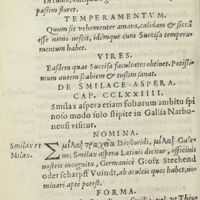 pastim floret.
TEMPERAMENTUM.
Quum sit vehementer amara, calidam & siccā
esse nemo nescit, idémque cum Succisa tempera-
mentum habet.
VIRES.
Easdem quas Succisa facultates obtinet. Potissi-
mum autem scabiem & tussim sanat.
DE SMILACE ASPERA.
CAP. CCLXXIIII.
Smilax aspera etiam foliorum ambitu spi
noso modo solo stipite in Gallia Narbo-
nensi visitur.
NOMINA.
Smilax et
Milax.
Σμίλαξ τραχεῖα Dioscoridi, μίλαξ Gale-
no; Smilax aspera Latinis dicitur, officinis
nostris incognita, Germanicè Grosz Stechend
oder scharpff Vuindt, ab aculeis quos habet, no-
minari apté potest.
FORMA.